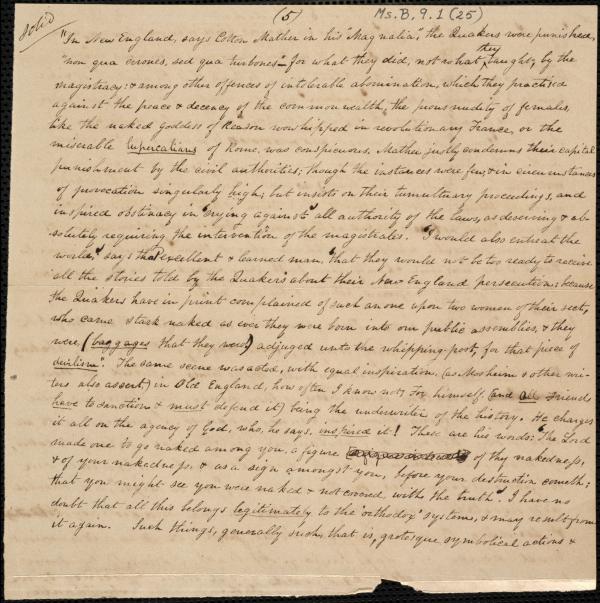 solid
(5)
Ms. B. 9. 1 (25)
"In New England, says Cotton Mather in his "Magnalia," the Quakers were punished,
"non qua errones, sed qua turbones — for what they did, not what they taught, by the
magistracy: & among other offences of intolerable abomination, which they practised
against the peace & decency of the commonwealth, the pious nudity of females,
like the naked goddess of Reason worshipped in revolutionary France, or the
miserable Lupercalians of Rome, was conspicuous. Mather justly condemns their capital
punishment by the civil authorities; though the instances were few, & in circumstances
of provocation singularly high; but insists on their tumultuary proceedings, and
inspired obstinacy in "crying against" all authority of the laws, as deserving & ab-
solutely requiring the intervention of the magistrates. "I would also entreat the
world," says that excellent & learned man, "that they would not be too ready to receive
all the stories told by the Quakers about their New England persecution: because
the Quakers have in print complained of such an one upon two women of their sect,
who came stark naked as ever they were born into our public assemblies, & they
were (baggages that they were) adjuged unto the whipping-post, for that piece of
devilism". The same scene was acted, with equal inspiration, (as Mosheim & other wri-
ters also assert) in Old England, how often I know not; for himself (and all Friends
have to sanction & must defend it) being the underwriter of the history. He charges
it all on the agency of God, who, he says, inspired it! These are his words: "The Lord
made one to go naked among you, a figure of thy nakedness,
& of your nakedness, & as a sign amongst you, before your destruction cometh;
that you might see you were naked & not covered with the truth". I have no
doubt that all this belongs legitimately to the "orthodox" systems, & may result from
it again. Such things, generally such, that is, grotesque symbolical actions &